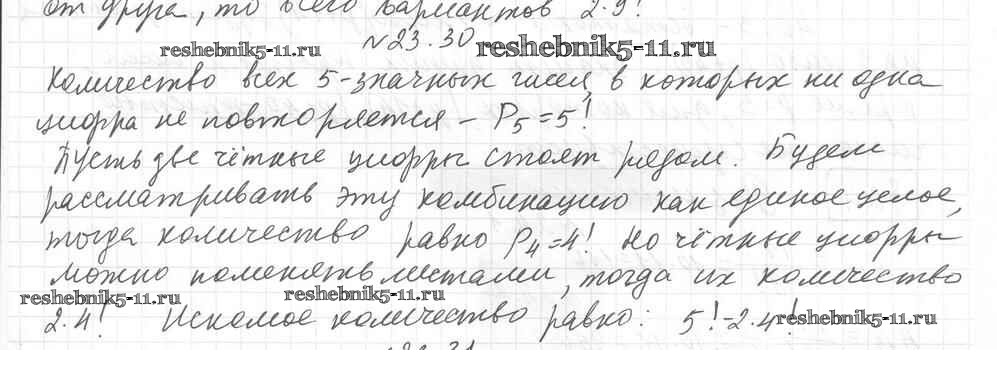 от друга, то всего вариантов 2·9!
reshebnik5-11.ru №23.30 reshebnik5-11.ru
Количество всех 5-значных чисел, в которых ни одна
цифра не повторяется – P₅=5!
Пусть две чётные цифры стоят рядом. Будем
рассматривать эту комбинацию как единое целое,
тогда количество равно P₄=4! Но чётные цифры
можно поменять местами, тогда их количество
reshebnik5-11.ru reshebnik5-11.ru
2·4! Искомое количество равно: 5!-2·4! reshebnik5-11.ru